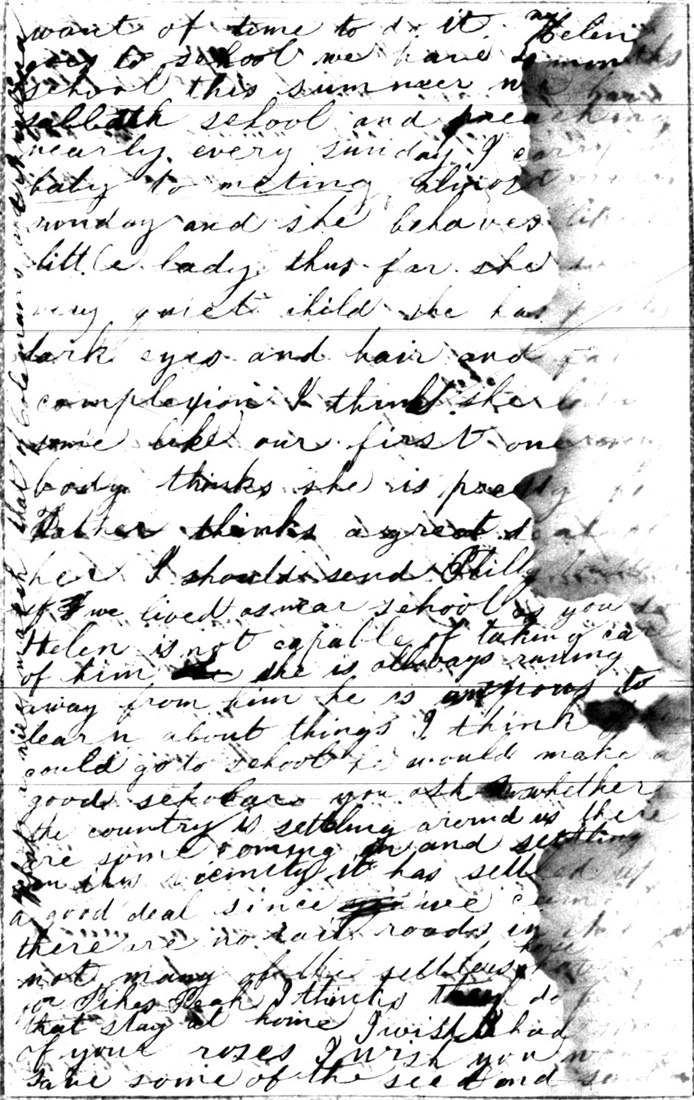 want of time to do it. Helen
goes to school we have 3 months
school this summer we have
sabbath school and preaching
nearly every sunday I carry
baby to meting almost
sunday and she behaves like
little lady thus far she
very quiet child she has
dark eyes and hair and
complexion I think she
some like our first one
body thinks she is pretty
Father thinks a great deal
her I should send Willy
if we lived as near school as you
Helen is not capable of taking car
of him she is allways runing
away from him he is anxious to
learn about things I think
could go to school he would make a
good scholar you ask whether
the country is settling around us there
are some coming in and settling
in this vicinity it has settled up
a good deal since we came
there are no rail roads in
not many of the settlers have
for Pikes Peak I think they do
that stay at home I wish I had
of your roses I wish you
save some of the seed and
What a nice match that of Colemans